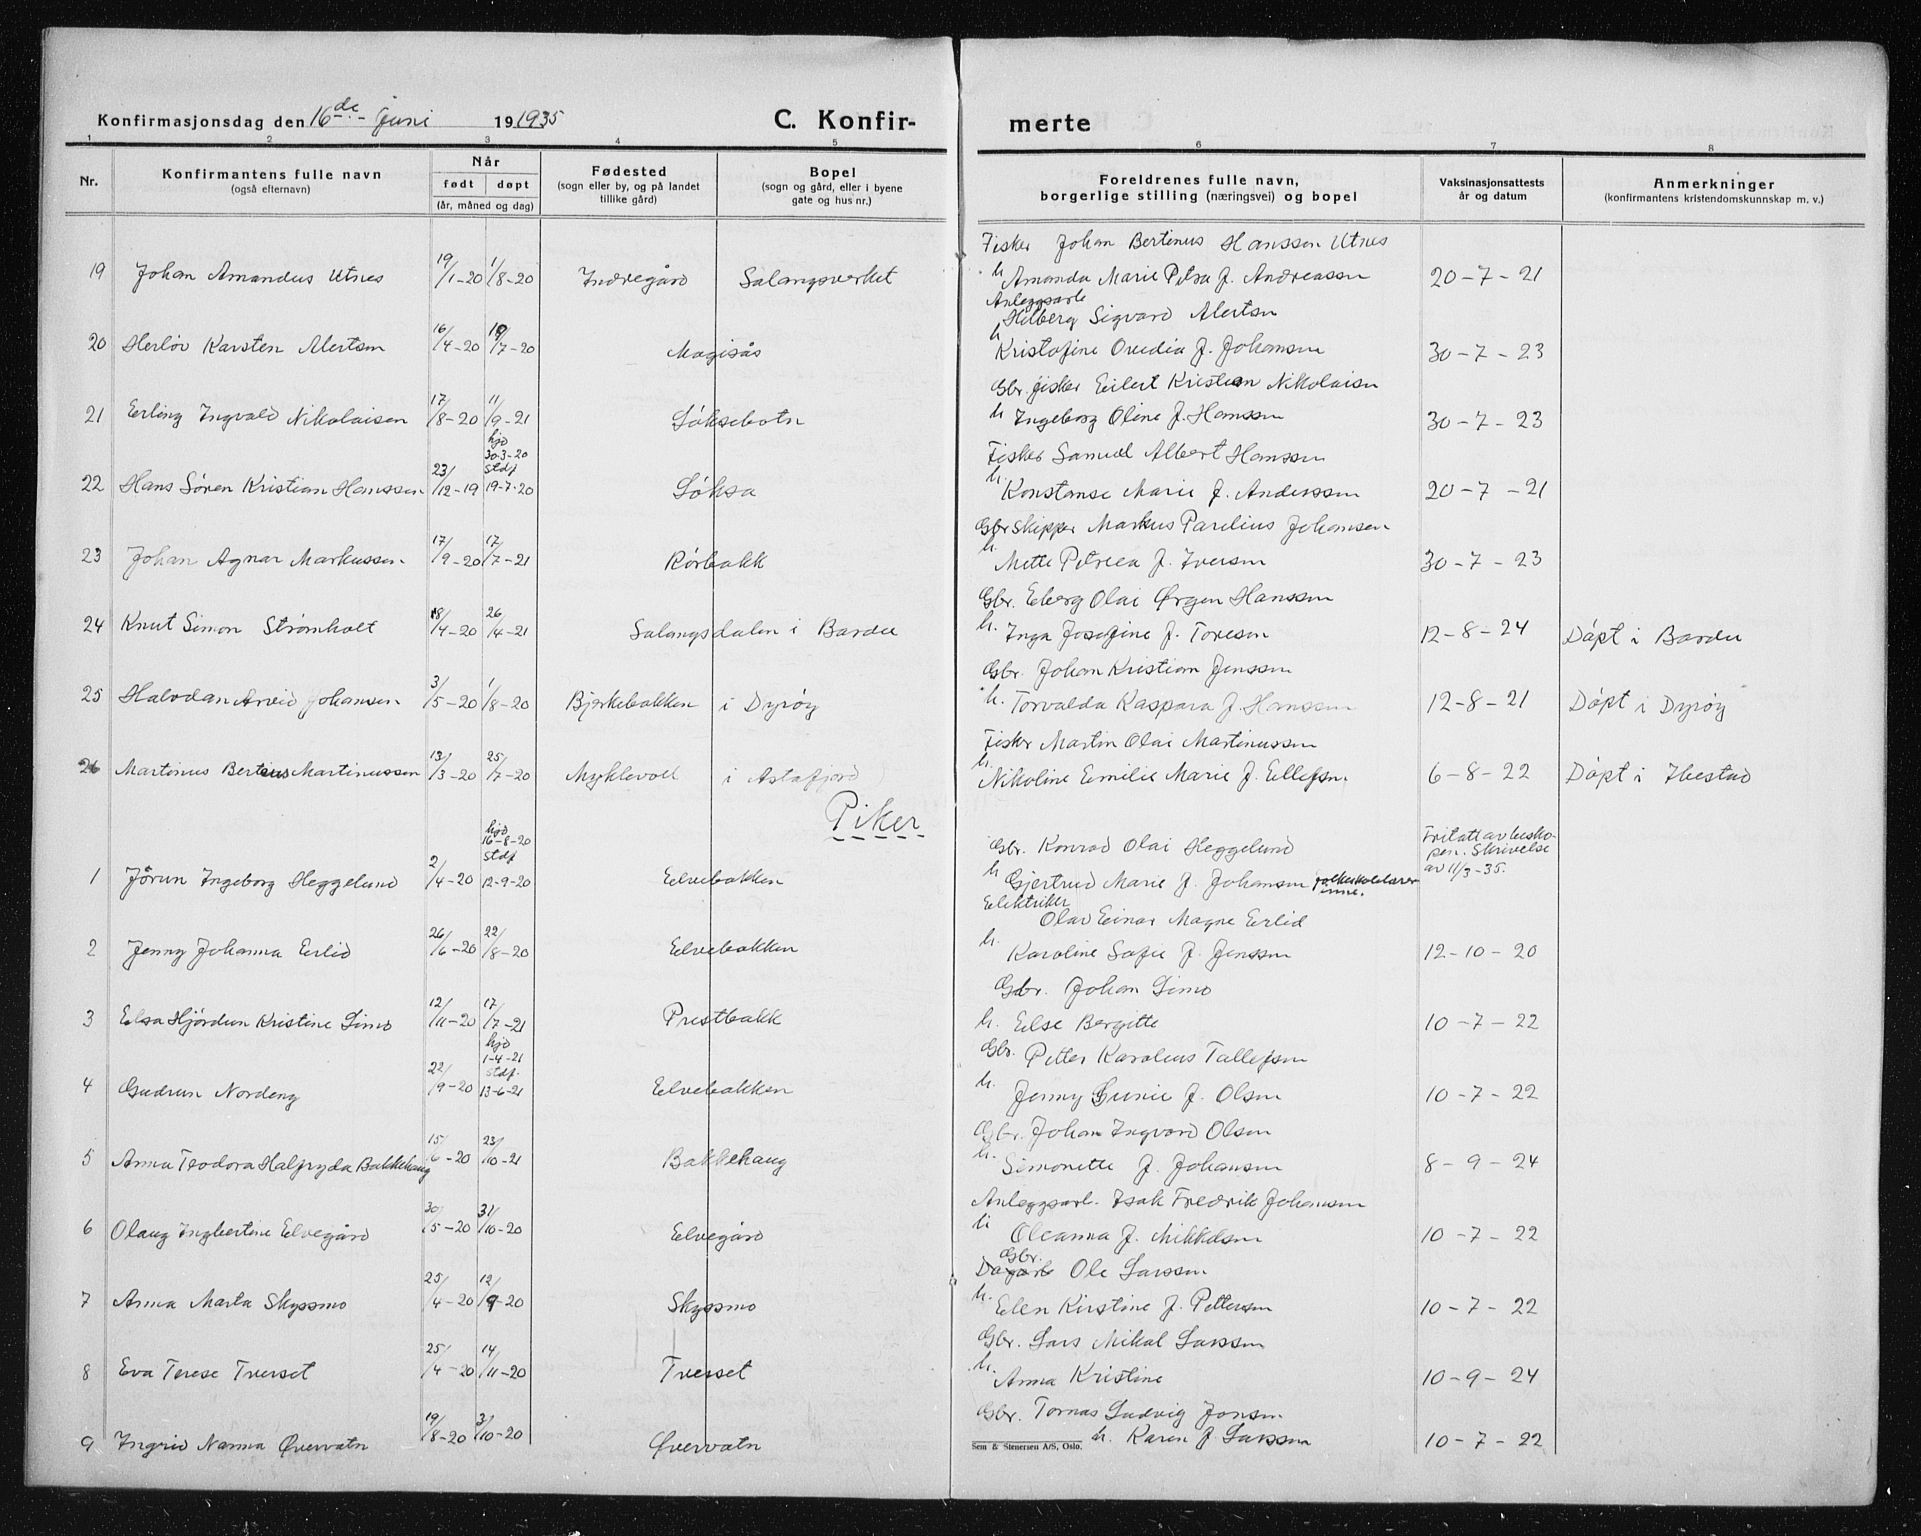 Konfirmasjonsdag den 16de juni 19 1935 C. Konfir- merte
1 2 3 4 5 6 7 8
Nr. Konfirmantens fulle navn (også efternavn) Når født døpt (år, måned og dag) Fødested (sogn eller by, og på landet tillike gård) Bopel (sogn og gård, eller i byene gate og hus nr.) Foreldrenes fulle navn, borgerlige stilling (næringsvei) og bopel Vaksinasjonsattests år og datum Anmerkninger (konfirmantens kristendomskunnskap m. v.)
Fisker Johan Bertinus Hanssen Utnes
19 Johan Amandus Utnes 19/1-20 1/8-20 Indregård Salangsverket h. Amanda Marie Petra f. Andreassen 20-7-21
Anleggsarb Hilberg Sigvard Alertsen
20 Herløv Karsten Alertsen 16/4-20 /7-20 Magisås h Kristofine Ovedia f. Johansen 30-7-23
Gbr. fisker Eilert Kristian Nikolaisen
21 Erling Ingvald Nikolaisen 17/8-20 11/9-21 Løksebotn h Ingeborg Oline f. Hanssen 30-7-23
Fisker Samuel Albert Hanssen
22 Hans Sören Kristian Hanssen 23/12-19 hjd 30-3-20 stdf 19-7-20 Løksa h. Konstanse Marie f. Anderssen 20-7-21
Gbr Skipper Markus Parelius Johansen
23 Johan Agnar Markussen 17/9-20 17/7-21 Rørbakk h. Mette Petrea f. Iversen 30-7-23
Gbr. Eberg Olai Ørgen Hanssen
24 Knut Simon Strømholt 18/4-20 26/4-21 Salangsdalen i Bardu h. Inga Josefine f. Toresen 12-8-24 Döpt i Bardu
Gbr. Johan Kristian Jenssen
25 Halvdan Arvid Johansen 3/5-20 1/8-20 Bjerkebakken i Dyrøy h. Torvalda Kaspara f. Hanssen 12-8-21 Döpt i Dyrøy
Fisker Martin Olai Martinussen
26 Martinus Berteus Martinussen 13/3-20 25/7-20 Myklevoll i Astafjord h. Nikoline Emilie Marie f. Ellefsen. 6-8-22 Döpt i Ibestad
Piker
Gbr. Konrad Olai Heggelund
1 Jørun Ingeborg Heggelund 2/4-20 hjd 16-8-20 stdf 12-9-20 Elvebakken h Gjertrud Marie f. Johansen folkeskolelærerinne. Fritatt av biskopen. Skrivelse av 11/3-35.
Elektriker Olav Einar Magne Erlid
2 Jenny Johanna Erlid 26/6-20 22/8-20 Elvebakken h. Karoline Sofie f. Jenssen 12-10-20
Gbr. Johan Simo
3 Elsa Hjördun Kristine Simo 12/11-20 17/7-21 Prestbakk h. Else Bergitte 10-7-22
Gbr. Petter Karolius Tallefsen
4 Gudrun Nordeng 22/9-20 hjd 1-4-21 stdf. 13-6-21 Elvebakken h. Jenny Gunie f. Olsen 10-7-22
Gbr. Johan Ingvard Olsen
5 Anna Teodora Halfryda Bakkehaug 15/6-20 23/10-21 Bakkehaug h. Simonette f. Johansen 8-9-24
Anleggsarb. Isak Fredrik Johansen
6 Olaug Ingbertine Elvegård 30/5-20 31/10-20 Elvegård h Oleanna f. Mikkelsen 10-7-22
Gbr. Dagarb Ole Larssen
7 Anna Marta Skyssmo 25/4-20 12/9-20 Skyssmo h. Elen Kirstine f. Pettersen 10-7-22
Gbr. Lars Mikal Larssen
8 Eva Terese Tverset 25/4-20 14/11-20 Tverset h. Anna Kristine 10-9-24
Gbr. Tomas Ludvig Jonsen
9 Ingrid Nanna Øvervatn 19/8-20 3/10-20 Øvervatn h. Karen f. Larssen 10-7-22
Sem & Stenersen A/S, Oslo.